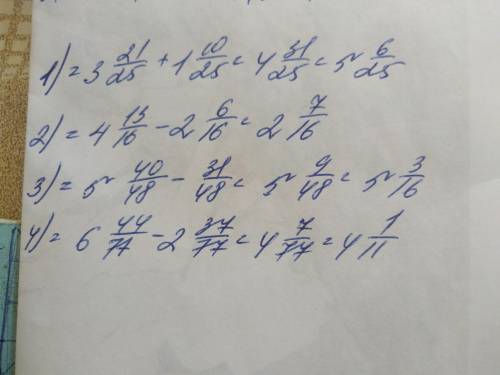 1) = 3 21/25 + 1 10/25 = 4 31/25 = 5 6/25
2) = 4 13/16 - 2 6/16 = 2 7/16
3) = 5 40/48 - 31/48 = 5 9/48 = 5 3/16
4) = 6 44/77 - 2 37/77 = 4 7/77 = 4 1/11